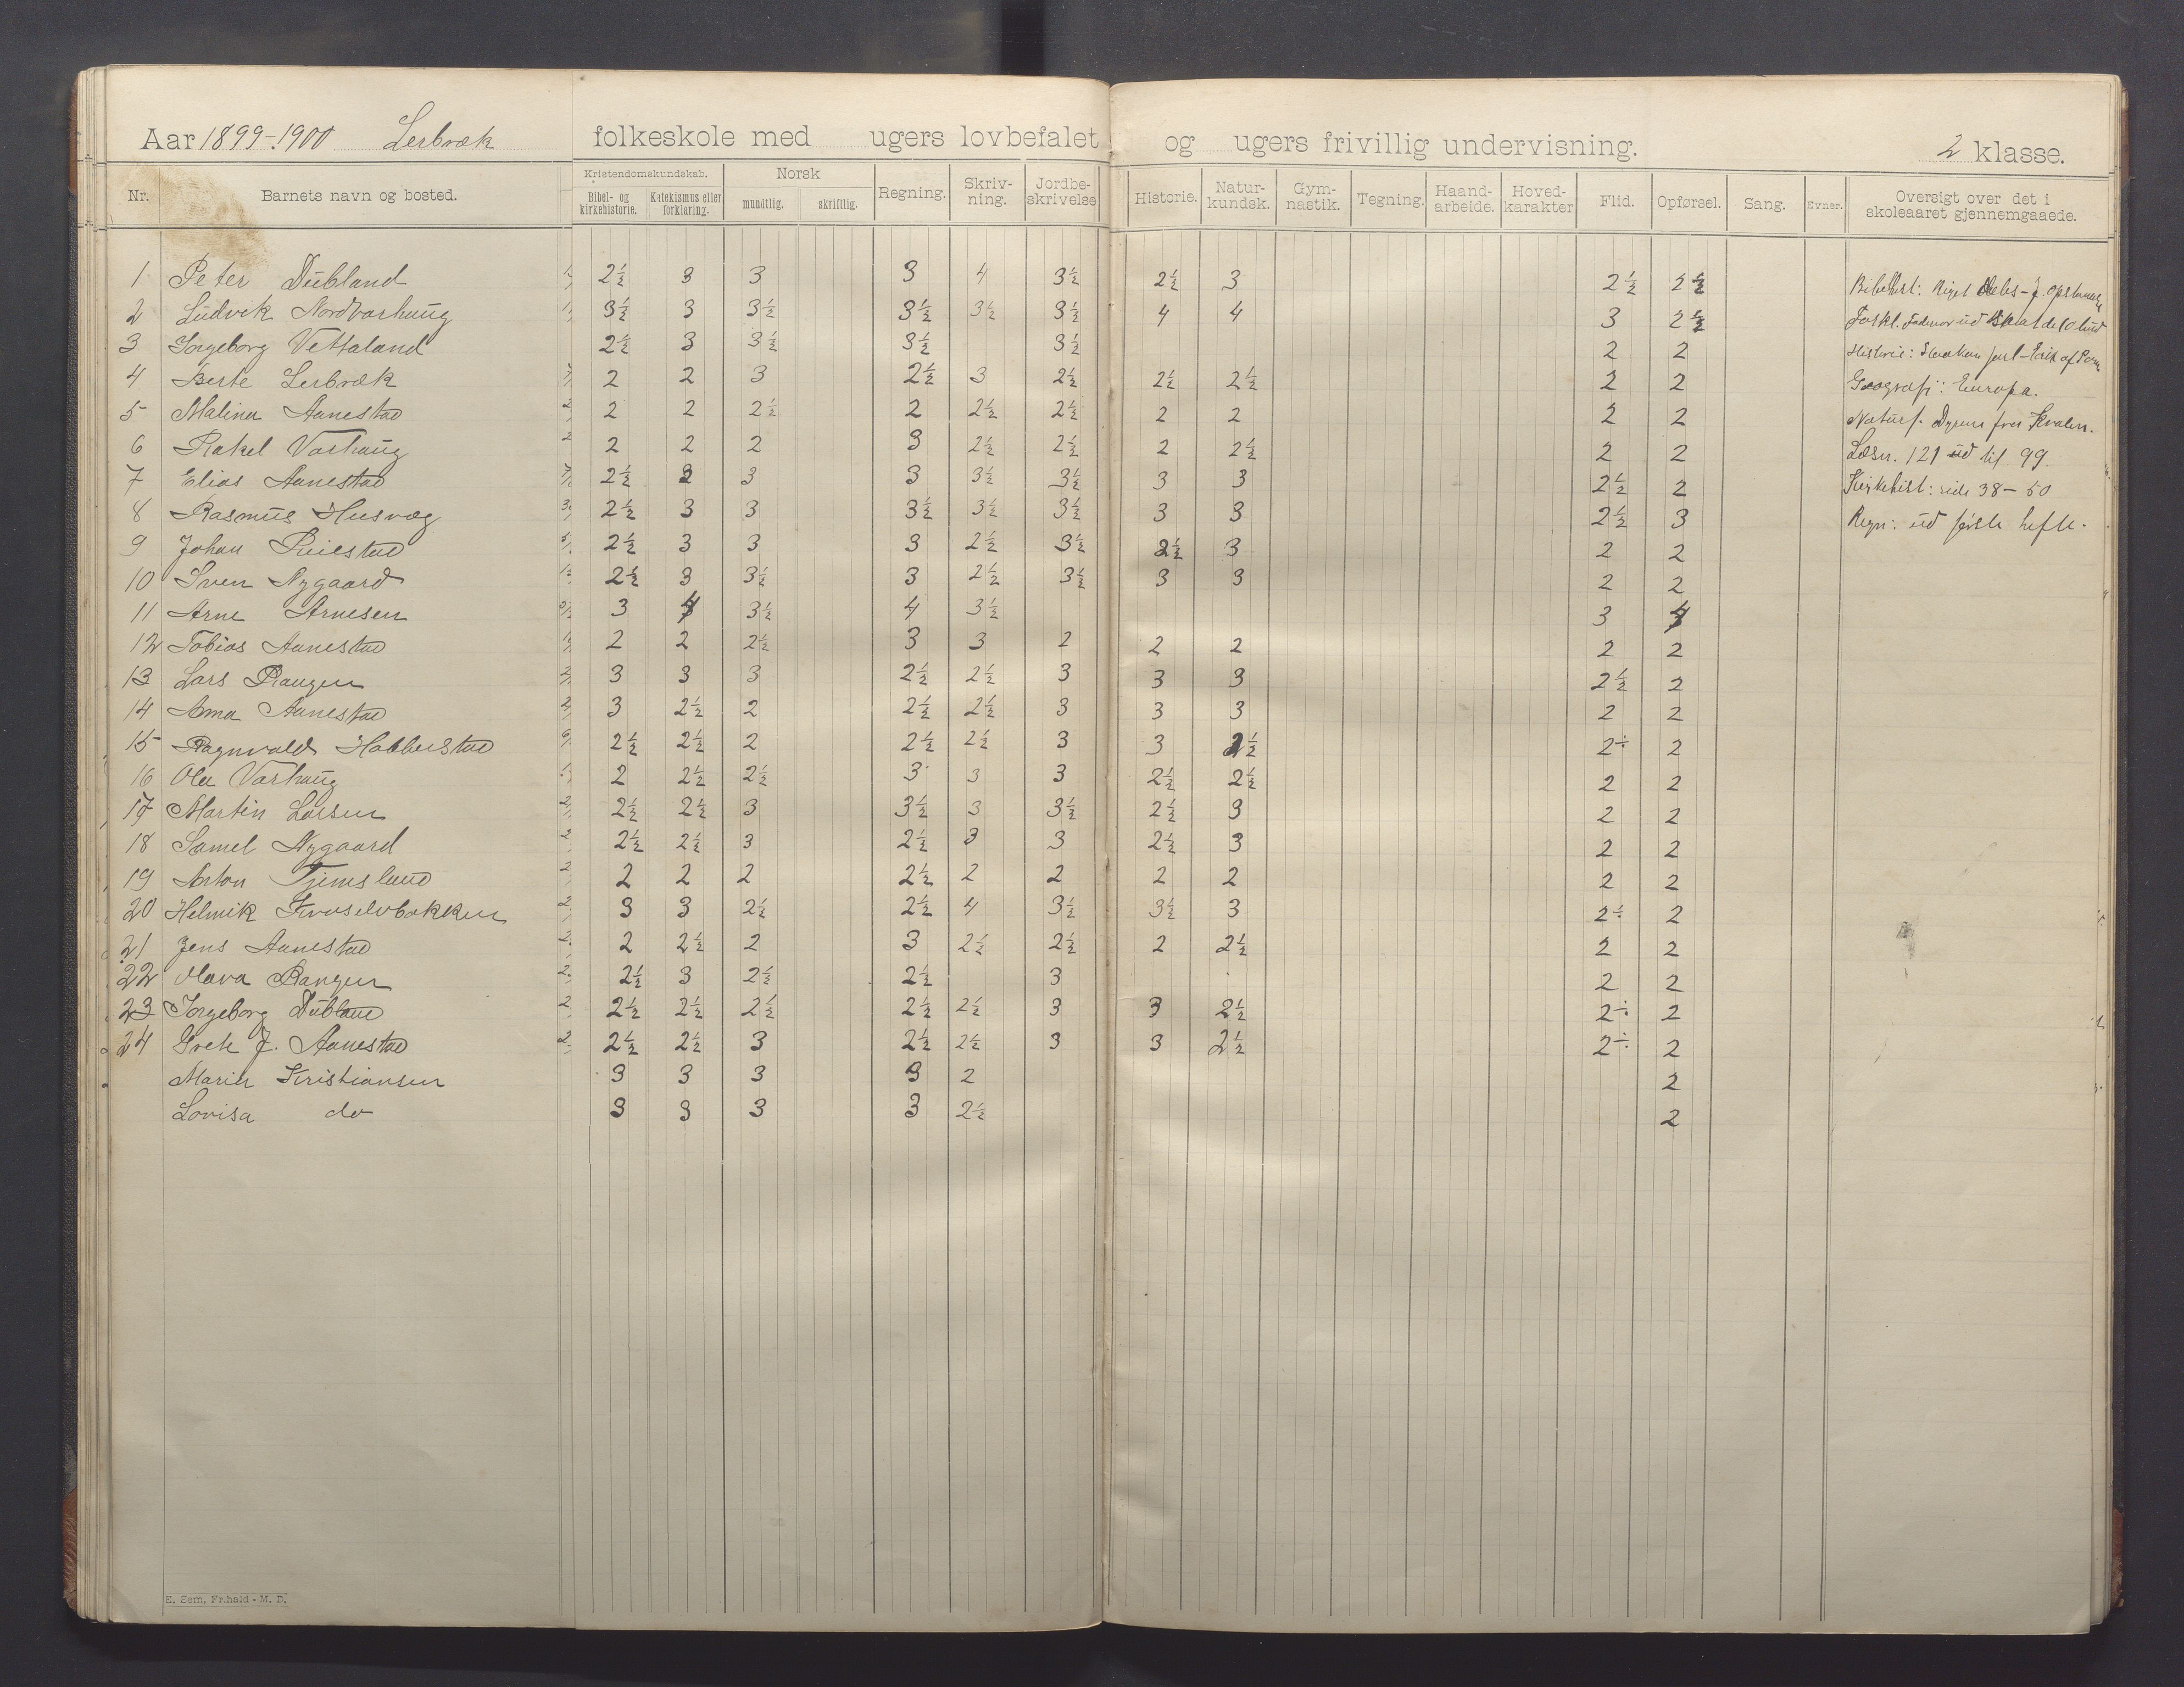 Aar 1899-1900 Lerbræk folkeskole med ugers lovbefalet og ugers frivillig undervisning. 2 klasse.
Nr. Barnets navn og bosted. Kristendomskundskab. Bibel- og kirkehistorie. Katekismus eller forklaring. Norsk mundtlig. skriftlig. Regning. Skriv-ning. Jordbe-skrivelse Historie. Natur-kundsk. Gym-nastik. Tegning. Haand-arbeide. Hoved-karakter Flid. Opførsel. Sang. Evner. Oversigt over det i skoleaaret gjennemgaaede.
1 Peter Dubland 2½ 3 3 3 4 3½ 2½ 3 2½ 2½ Bibelhist: Riget
2 Ludvik Nordvarhaug 3½ 3 3½ 3½ 3½ 3½ 4 4 3 2½ Forkl. Fadervor ud
3 Ingeborg Vettaland 2½ 3 3½ 3½ 3½ 2 2 Historie: Haakon jarl - Erik af Pom
4 Berte Lerbræk 2 2 3 2½ 3 2½ 2½ 2½ 2 2 Geografi: Europa.
5 Malina Aanestad 2 2 2½ 2 2½ 2½ 2 2 2 2 Naturf. Dyrene fra Hvalen.
6 Rakel Varhaug 2 2 2 3 2½ 2½ 2 2½ 2 2 Læsn. 121 ud til 99.
7 Elias Aanestad 2½ 3 3 3 3½ 3½ 3 3 2½ 2 Kirkehist: side 38-50
8 Rasmus Husvæg 2½ 3 3 3½ 3½ 3½ 3 3 2½ 3 Regn: ud første hefte.
9 Johan 2½ 3 3 3 2½ 3½ 2½ 3 2 2
10 Sven Nygaard 2½ 3 3½ 3 2½ 3½ 3 3 2 2
11 Arne Arnesen 3 4 3½ 4 3½ 3 4
12 Tobias Aanestad 2 2 2½ 3 3 2 2 2 2 2
13 Lars Rangen 3 3 3 2½ 2½ 3 3 3 2½ 2
14 Anna Aanestad 3 2½ 2 2½ 2½ 3 3 3 2 2
15 Ragnvald Habberstad 2½ 2½ 2 2½ 2½ 3 3 2½ 2÷ 2
16 Ole Varhaug 2 2½ 2½ 3 3 3 2½ 2½ 2 2
17 Martin Larsen 2½ 2½ 3 3½ 3 3½ 2½ 3 2 2
18 Samel Nygaard 2½ 2½ 3 2½ 3 3 2½ 3 2 2
19 Anton Tjemsland 2 2 2 2½ 2 2 2 2 2 2
20 Helmik 3 3 2½ 2½ 4 3½ 3½ 3 2÷ 2
21 Jens Aanestad 2 2½ 2 3 2½ 2½ 2 2½ 2 2
22 Rangen 2½ 3 2½ 2½ 3 2 2
23 Ingeborg Dubland 2½ 2½ 2½ 2½ 2½ 3 3 2½ 2÷ 2
24 Grete J. Aanestad 2½ 2½ 3 2½ 2½ 3 3 2½ 2÷ 2
Marie Kristiansen 3 3 3 3 2 2
Lovisa do 3 3 3 3 2½ 2
E. Sem, Fr.hald - M. D.